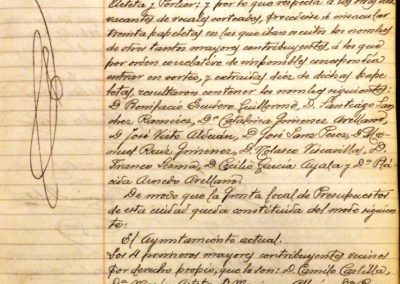 y por lo que respecta á las diez
vacantes de vocales sorteados, procedióse á insacular
treinta papeletas en las que iban escritos los nombres
de otros tantos mayores contribuyentes, á los que
por orden correlativo de imponibles correspondia
entrar en sorteo, y extraidas diez de dichas pape
letas, resultaron contener los nombres siguientes:
D. Bonifacio Escudero Guillermo, D. Santiago San
chez Ramirez, Dª Catalina Jimenez Arellano,
D. José Alduán, D. José Sanz Perez, D.
Ruiz Jimenez, D. Velasco Vicarilla, D.
Franco Serna, D. Cecilio García Ayala y Dª Plá
cida Arnedo Arellano.
De modo que la Junta local de Presupuestos
de esta ciudad queda constituida del modo siguien
te:
El Ayuntamiento actual.
Los 4 primeros mayores contribuyentes vecinos
por derecho propio, que lo son: D. Camilo Castilla,